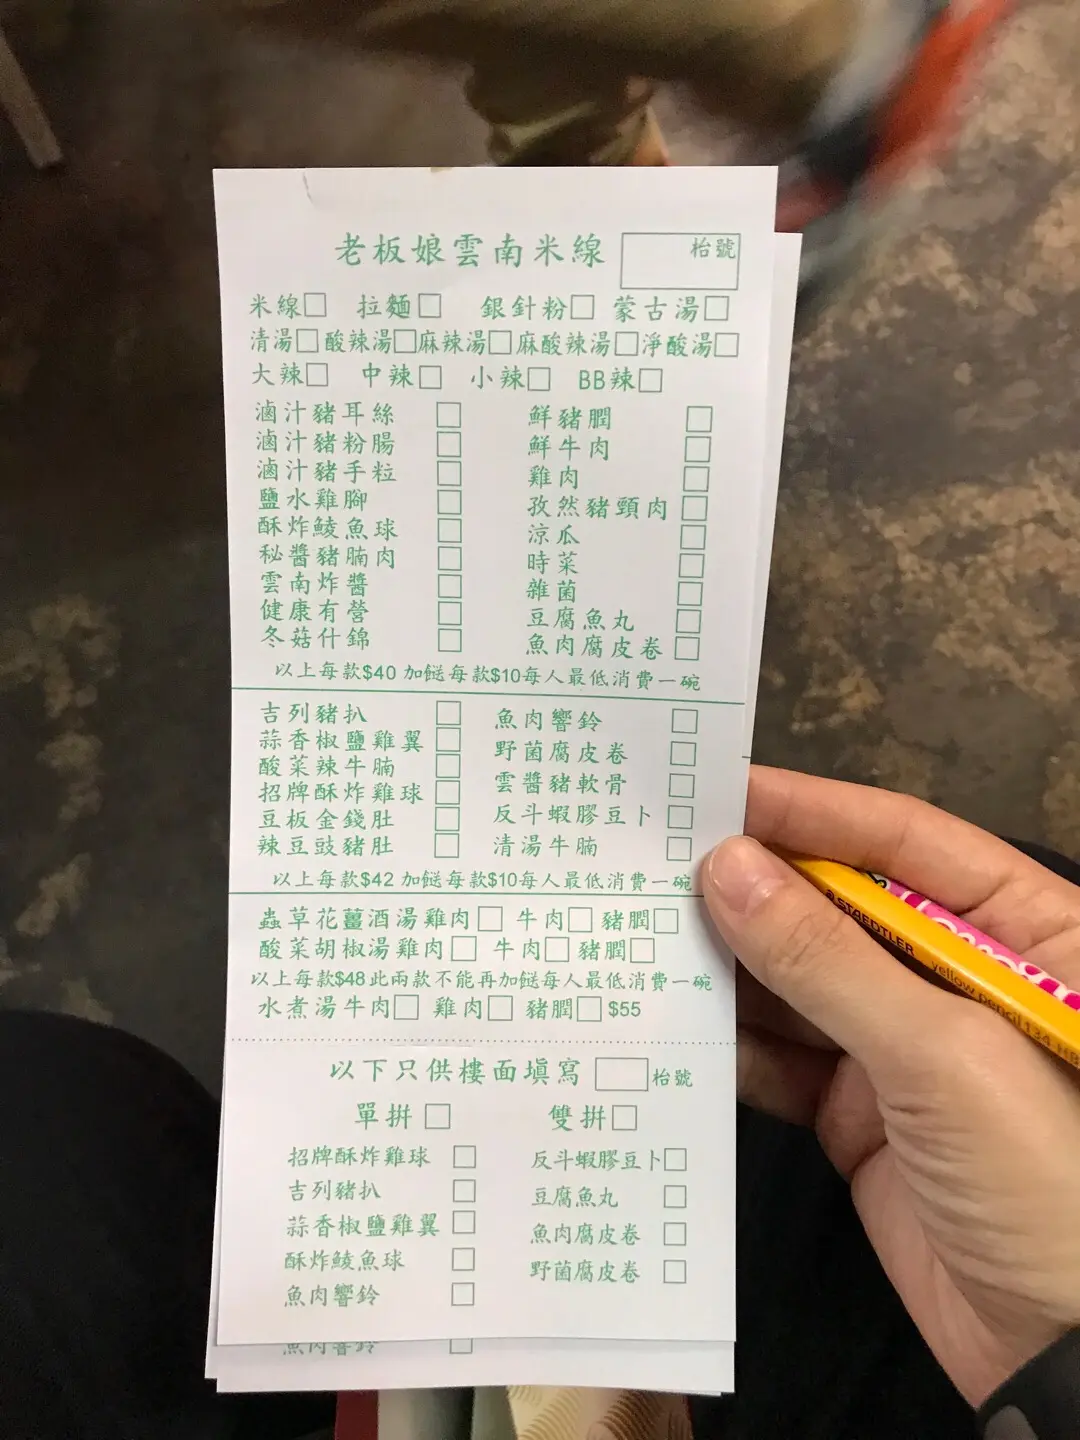 老板娘雲南米線 枱號
米線□ 拉麵□ 銀針粉□ 蒙古湯□
清湯□ 酸辣湯□ 麻辣湯□ 麻酸辣湯□ 淨酸湯□
大辣□ 中辣□ 小辣□ BB辣□
滷汁豬耳絲 □ 鮮豬膶 □
滷汁豬粉腸 □ 鮮牛肉 □
滷汁豬手粒 □ 雞肉 □
鹽水雞腳 □ 孜然豬頸肉 □
酥炸鯪魚球 □ 涼瓜 □
秘醬豬腩肉 □ 時菜 □
雲南炸醬 □ 雜菌 □
健康有營 □ 豆腐魚丸 □
冬菇什錦 □ 魚肉腐皮卷 □
以上每款$40 加餸每款$10每人最低消費一碗
吉列豬扒 □ 魚肉響鈴 □
蒜香椒鹽雞翼 □ 野菌腐皮卷 □
酸菜辣牛腩 □ 雲醬豬軟骨 □
招牌酥炸雞球 □ 反斗蝦膠豆卜 □
豆板金錢肚 □ 清湯牛腩 □
辣豆豉豬肚 □
以上每款$42 加餸每款$10每人最低消費一碗
蟲草花薑酒湯雞肉□ 牛肉□ 豬膶□
酸菜胡椒湯雞肉□ 牛肉□ 豬膶□
以上每款$48此兩款不能再加餸每人最低消費一碗
水煮湯牛肉□ 雞肉□ 豬膶□ $55
以下只供樓面填寫 □ 枱號
單拼 □ 雙拼□
招牌酥炸雞球 □ 反斗蝦膠豆卜□
吉列豬扒 □ 豆腐魚丸 □
蒜香椒鹽雞翼 □ 魚肉腐皮卷 □
酥炸鯪魚球 □ 野菌腐皮卷 □
魚肉響鈴 □
魚肉響鈴 □
STAEDTLER yellow pencil 134 HB